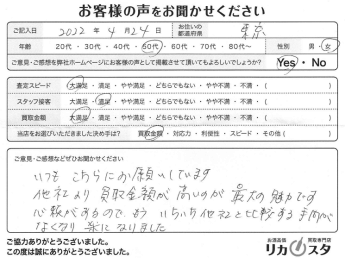 お客様の声をお聞かせください
ご記入日 2022年4月24日 お住いの都道府県 東京
年齢 20代・30代・40代・50代・60代・70代・80代〜 性別 男・女
ご意見・ご感想を弊社ホームページにお客様の声として掲載させて頂いてもよろしいでしょうか? Yes・No
査定スピード 大満足・満足・やや満足・どちらでもない・やや不満・不満・( )
スタッフ接客 大満足・満足・やや満足・どちらでもない・やや不満・不満・( )
買取金額 大満足・満足・やや満足・どちらでもない・やや不満・不満・( )
当店をお選びいただきました決め手は? 買取金額・対応力・利便性・スピード・その他( )
ご意見・ご感想などぜひお聞かせください
いつもこちらにお願いしています
他社より買取金額が高いのが最大の魅力です
信頼があるのでもういちいち他社と比較する手間が
なくなり楽になりました
ご協力ありがとうございました。
この度は誠にありがとうございました。
お酒高価買取専門店
リカスタ